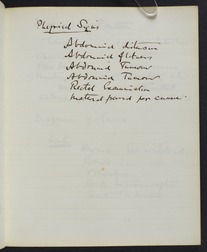 Physical Signs
Abdominal distension
Abdominal flatness
Abdominal Tumour
Abdominal Tumour
Rectal Examination
material passed per anum